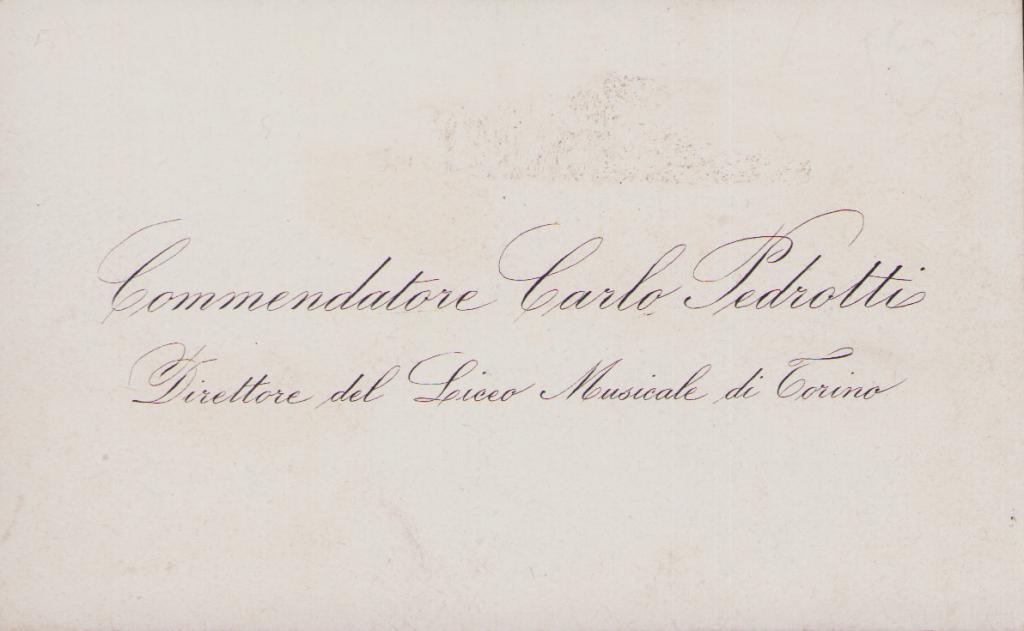 Commendatore Carlo Pedrotti
Direttore del Liceo Musicale di Torino